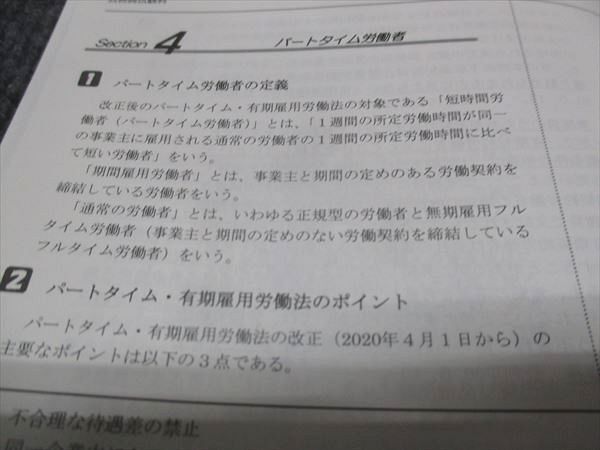 Section 4 パートタイム労働者
1 パートタイム労働者の定義
改正後のパートタイム・有期雇用労働法の対象である「短時間労
働者（パートタイム労働者）」とは、「１週間の所定労働時間が同一
の事業主に雇用される通常の労働者の１週間の所定労働時間に比べ
て短い労働者」をいう。
「期間雇用労働者」とは、事業主と期間の定めのある労働契約を
締結している労働者をいう。
「通常の労働者」とは、いわゆる正規型の労働者と無期雇用フル
タイム労働者（事業主と期間の定めのない労働契約を締結している
フルタイム労働者）をいう。
2 パートタイム・有期雇用労働法のポイント
パートタイム・有期雇用労働法の改正（2020年４月１日から）の
主要なポイントは以下の３点である。
不合理な待遇差の禁止